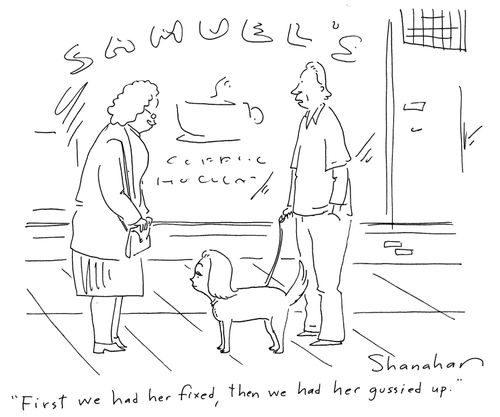 SAMUEL'S
Shanahan
"First we had her fixed, then we had her gussied up."